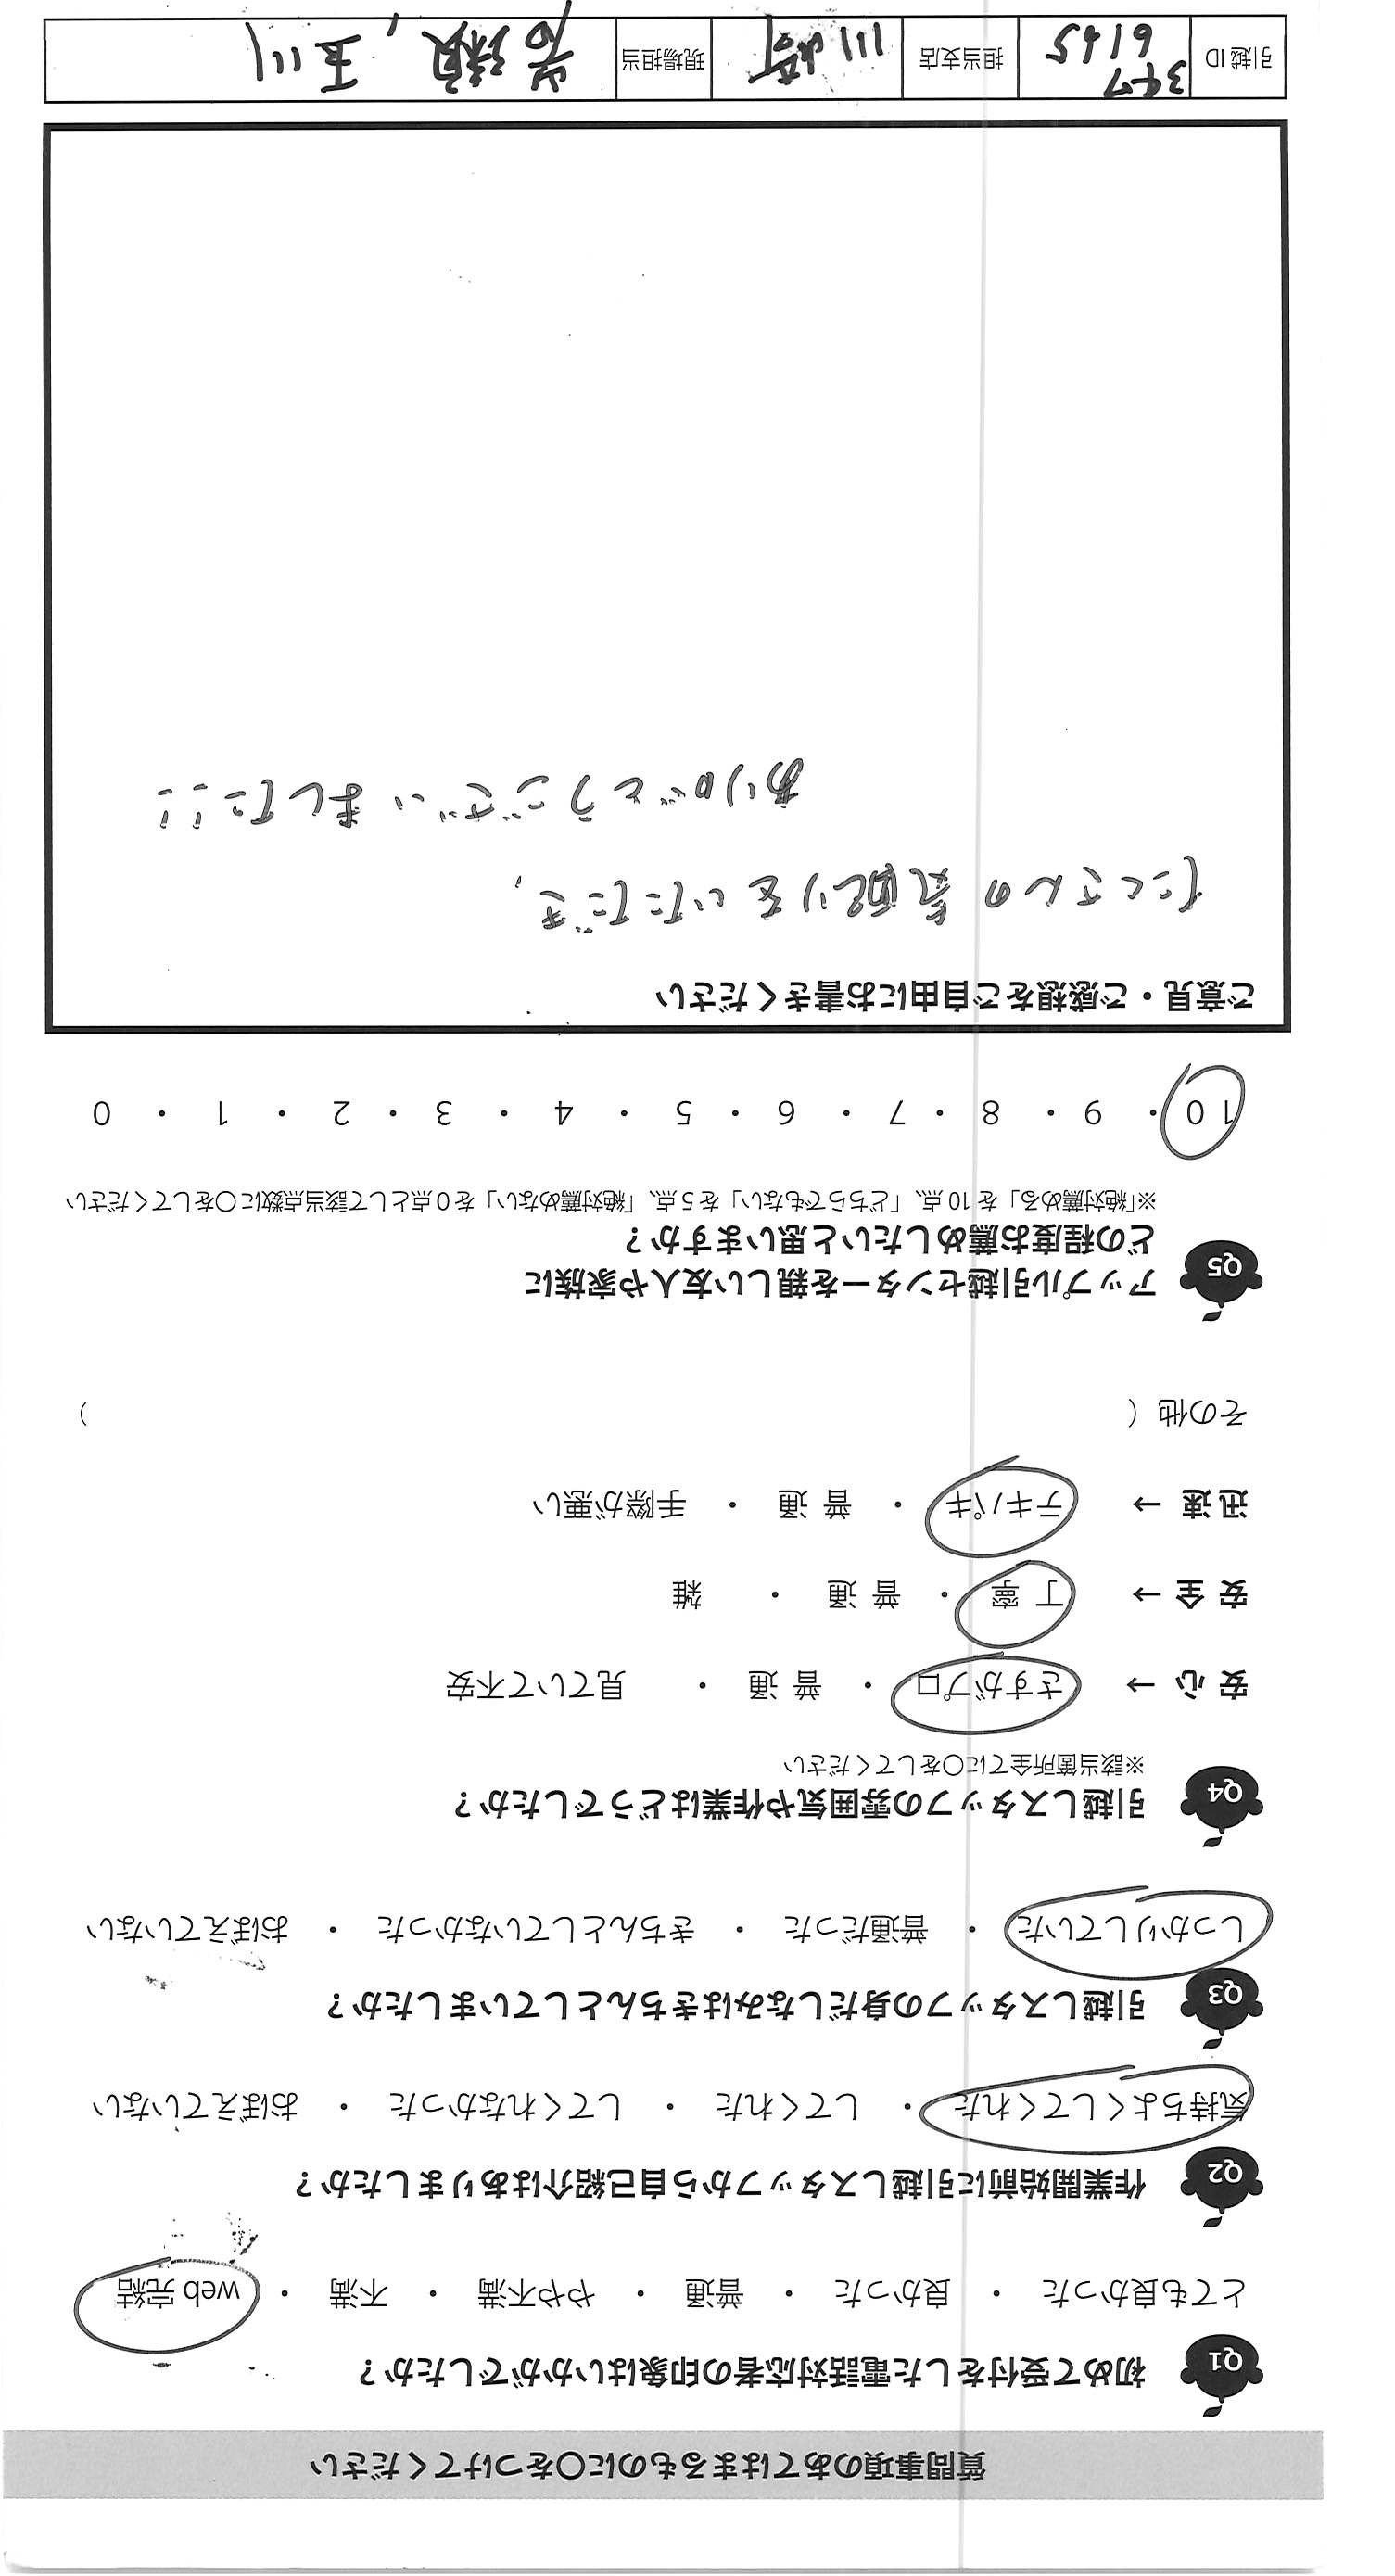 質問事項のあてはまるものに〇をつけてください
Q1 初めて受付をした電話対応者の印象はいかがでしたか？
とても良かった ・ 良かった ・ 普通 ・ やや不満 ・ 不満 ・ web 完結
Q2 作業開始前に引越しスタッフから自己紹介はありましたか？
気持ちよくしてくれた ・ してくれた ・ してくれなかった ・ おぼえていない
Q3 引越しスタッフの身だしなみはきちんとしていましたか？
しっかりしていた ・ 普通だった ・ きちんとしていなかった ・ おぼえていない
Q4 引越しスタッフの雰囲気や作業はどうでしたか？
※該当箇所全てに〇をしてください
安 心 → さすがプロ ・ 普 通 ・ 見ていて不安
安 全 → 丁 寧 ・ 普 通 ・ 雑
迅 速 → テキパキ ・ 普 通 ・ 手際が悪い
その他（ ）
Q5 アップル引越センターを親しい友人や家族に
どの程度お薦めしたいと思いますか？
※「絶対薦める」を 10 点、「どちらでもない」を 5 点、「絶対薦めない」を 0 点として該当点数に〇をしてください
10 ・ 9 ・ 8 ・ 7 ・ 6 ・ 5 ・ 4 ・ 3 ・ 2 ・ 1 ・ 0
ご意見・ご感想をご自由にお書きください
たくさんの気配りをいただき、
ありがとうございました!!
引越 ID 347 6165 担当支店 川崎 現場担当 岩瀬, 玉川